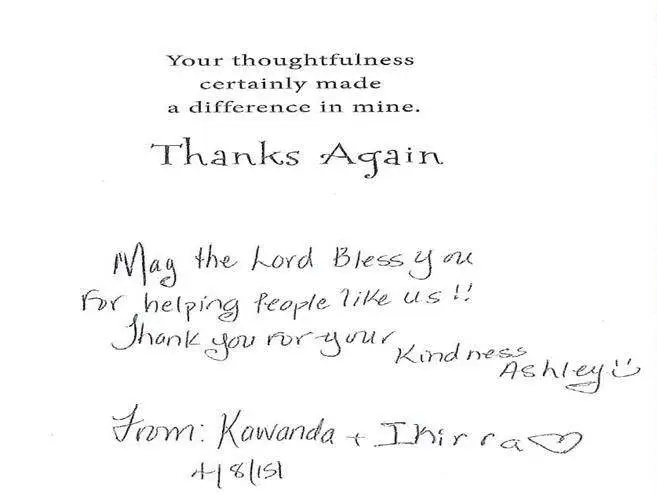 Your thoughtfulness
certainly made
a difference in mine.
Thanks Again
May the Lord Bless you
For helping People like us!!
Thank you For your Kindness
Ashley
From: Kawanda +
4/8/15